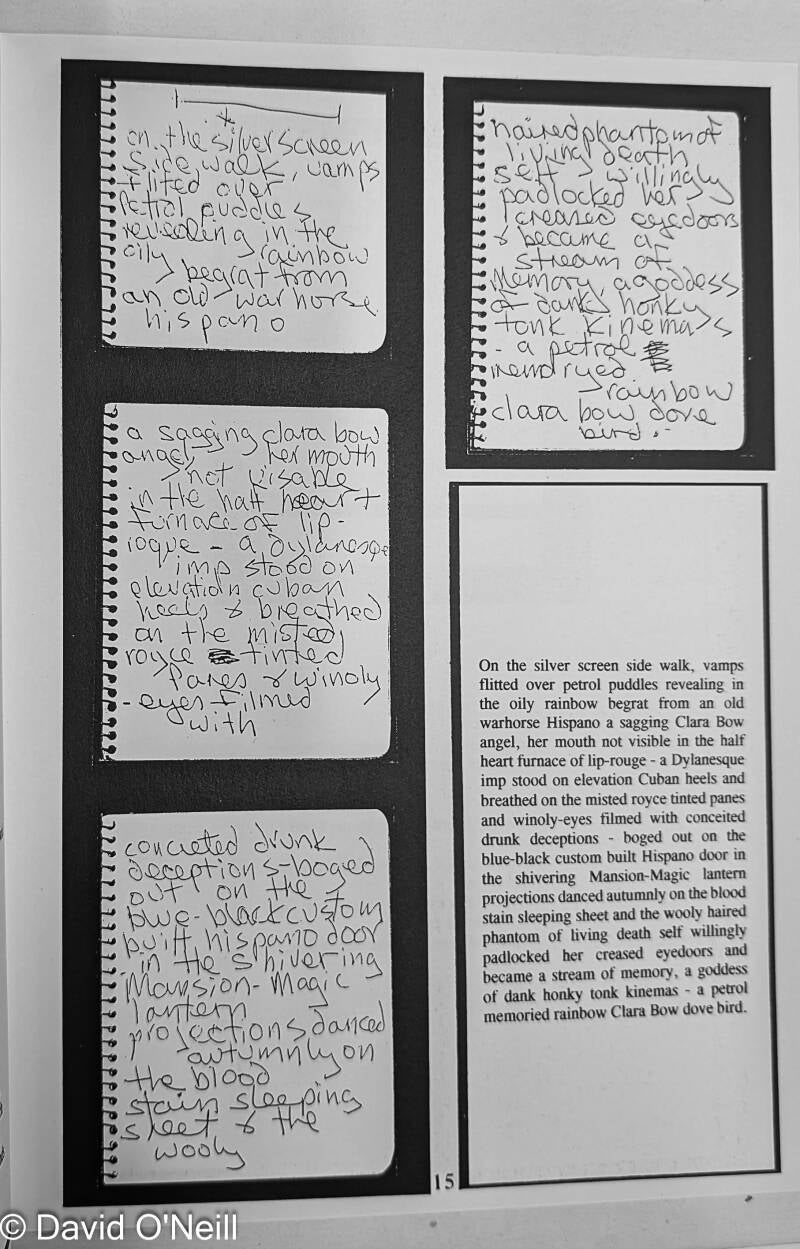 on the silver screen
side walk, vamps
flited over
Petrol puddles
revealing in the
oily rainbow
begrat from
an old warhorse
hispano
a sagging clara bow
angel, her mouth
not visable
in the half heart
furnace of lip-
roque - a dylanesqe
imp stood on
elevation cuban
heels & breathed
on the misted
royce tinted
Panes & winoly
- eyes filmed
with
concieted drunk
deceptions - boged
out on the
blue-black custom
built hispano door
in the shivering
Mansion - Magic
lantern
projections danced
autumnly on
the blood
stain sleeping
sheet & the
wooly
haired phantom of
living death
self willingly
padlocked her
creased eyedoors
& became a
stream of
Memory, a goddess
of dank honky
tonk kinemas
- a petrol
rainbow
clara bow dove
bird.
On the silver screen side walk, vamps
flitted over petrol puddles revealing in
the oily rainbow begrat from an old
warhorse Hispano a sagging Clara Bow
angel, her mouth not visible in the half
heart furnace of lip-rouge - a Dylanesque
imp stood on elevation Cuban heels and
breathed on the misted royce tinted panes
and winoly-eyes filmed with conceited
drunk deceptions - boged out on the
blue-black custom built Hispano door in
the shivering Mansion-Magic lantern
projections danced autumnly on the blood
stain sleeping sheet and the wooly haired
phantom of living death self willingly
padlocked her creased eyedoors and
became a stream of memory, a goddess
of dank honky tonk kinemas - a petrol
memoried rainbow Clara Bow dove bird.
15
© David O'Neill